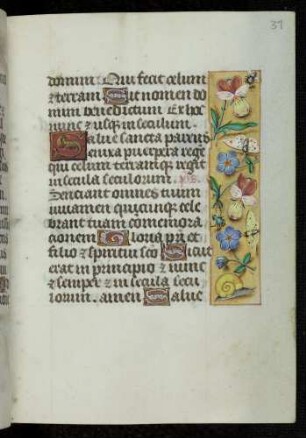 31
domini Qui fecit celum
& terram Sit nomen do
mini benedictum Ex hoc
nunc & usq; in seculum
Salue sancta parens
enixa puerpera rege
qui celum terramq; regit
in secula seculorum
Senciant omnes tuum
iuuamen quicunque cele
brant tuam comemora
cionem Gloria pri et
filio & spiritui sco Sicut
erat in principio & nunc
& semper & in secula secu
lorum amen Salue